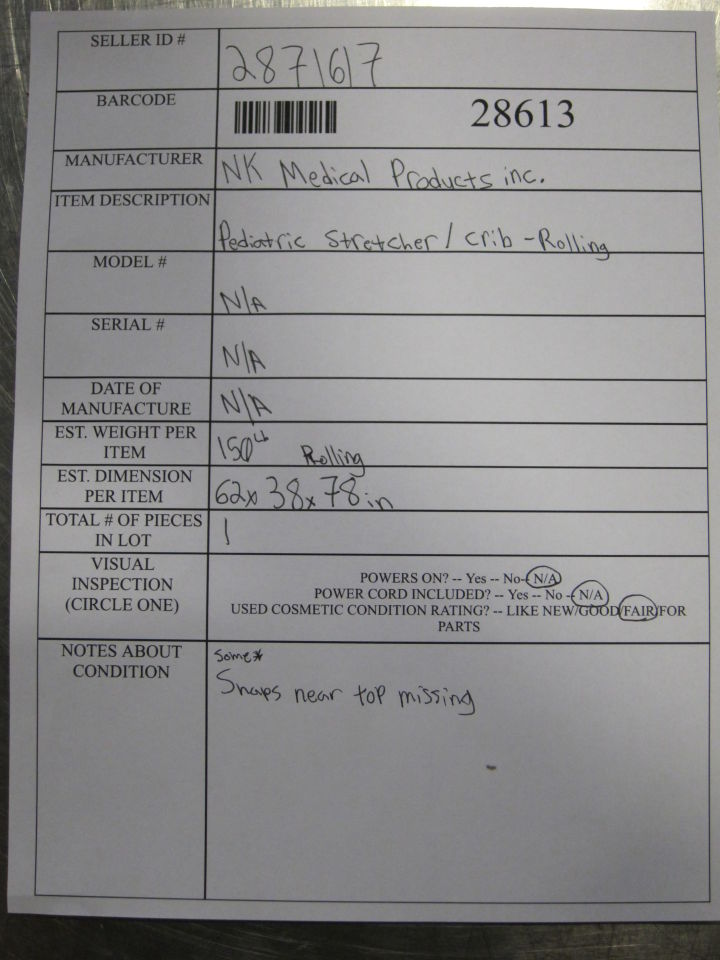 SELLER ID # 2871617
BARCODE 28613
MANUFACTURER NK Medical Products inc.
ITEM DESCRIPTION Pediatric Stretcher / Crib - Rolling
MODEL # N/A
SERIAL # N/A
DATE OF
MANUFACTURE N/A
EST. WEIGHT PER
ITEM 150 LB Rolling
EST. DIMENSION
PER ITEM 62 x 38 x 78 in
TOTAL # OF PIECES
IN LOT 1
VISUAL
INSPECTION
(CIRCLE ONE)
POWERS ON? -- Yes -- No - N/A
POWER CORD INCLUDED? -- Yes -- No -- N/A
USED COSMETIC CONDITION RATING? -- LIKE NEW/GOOD/FAIR/FOR
PARTS
NOTES ABOUT
CONDITION
Some*
Snaps near top missing